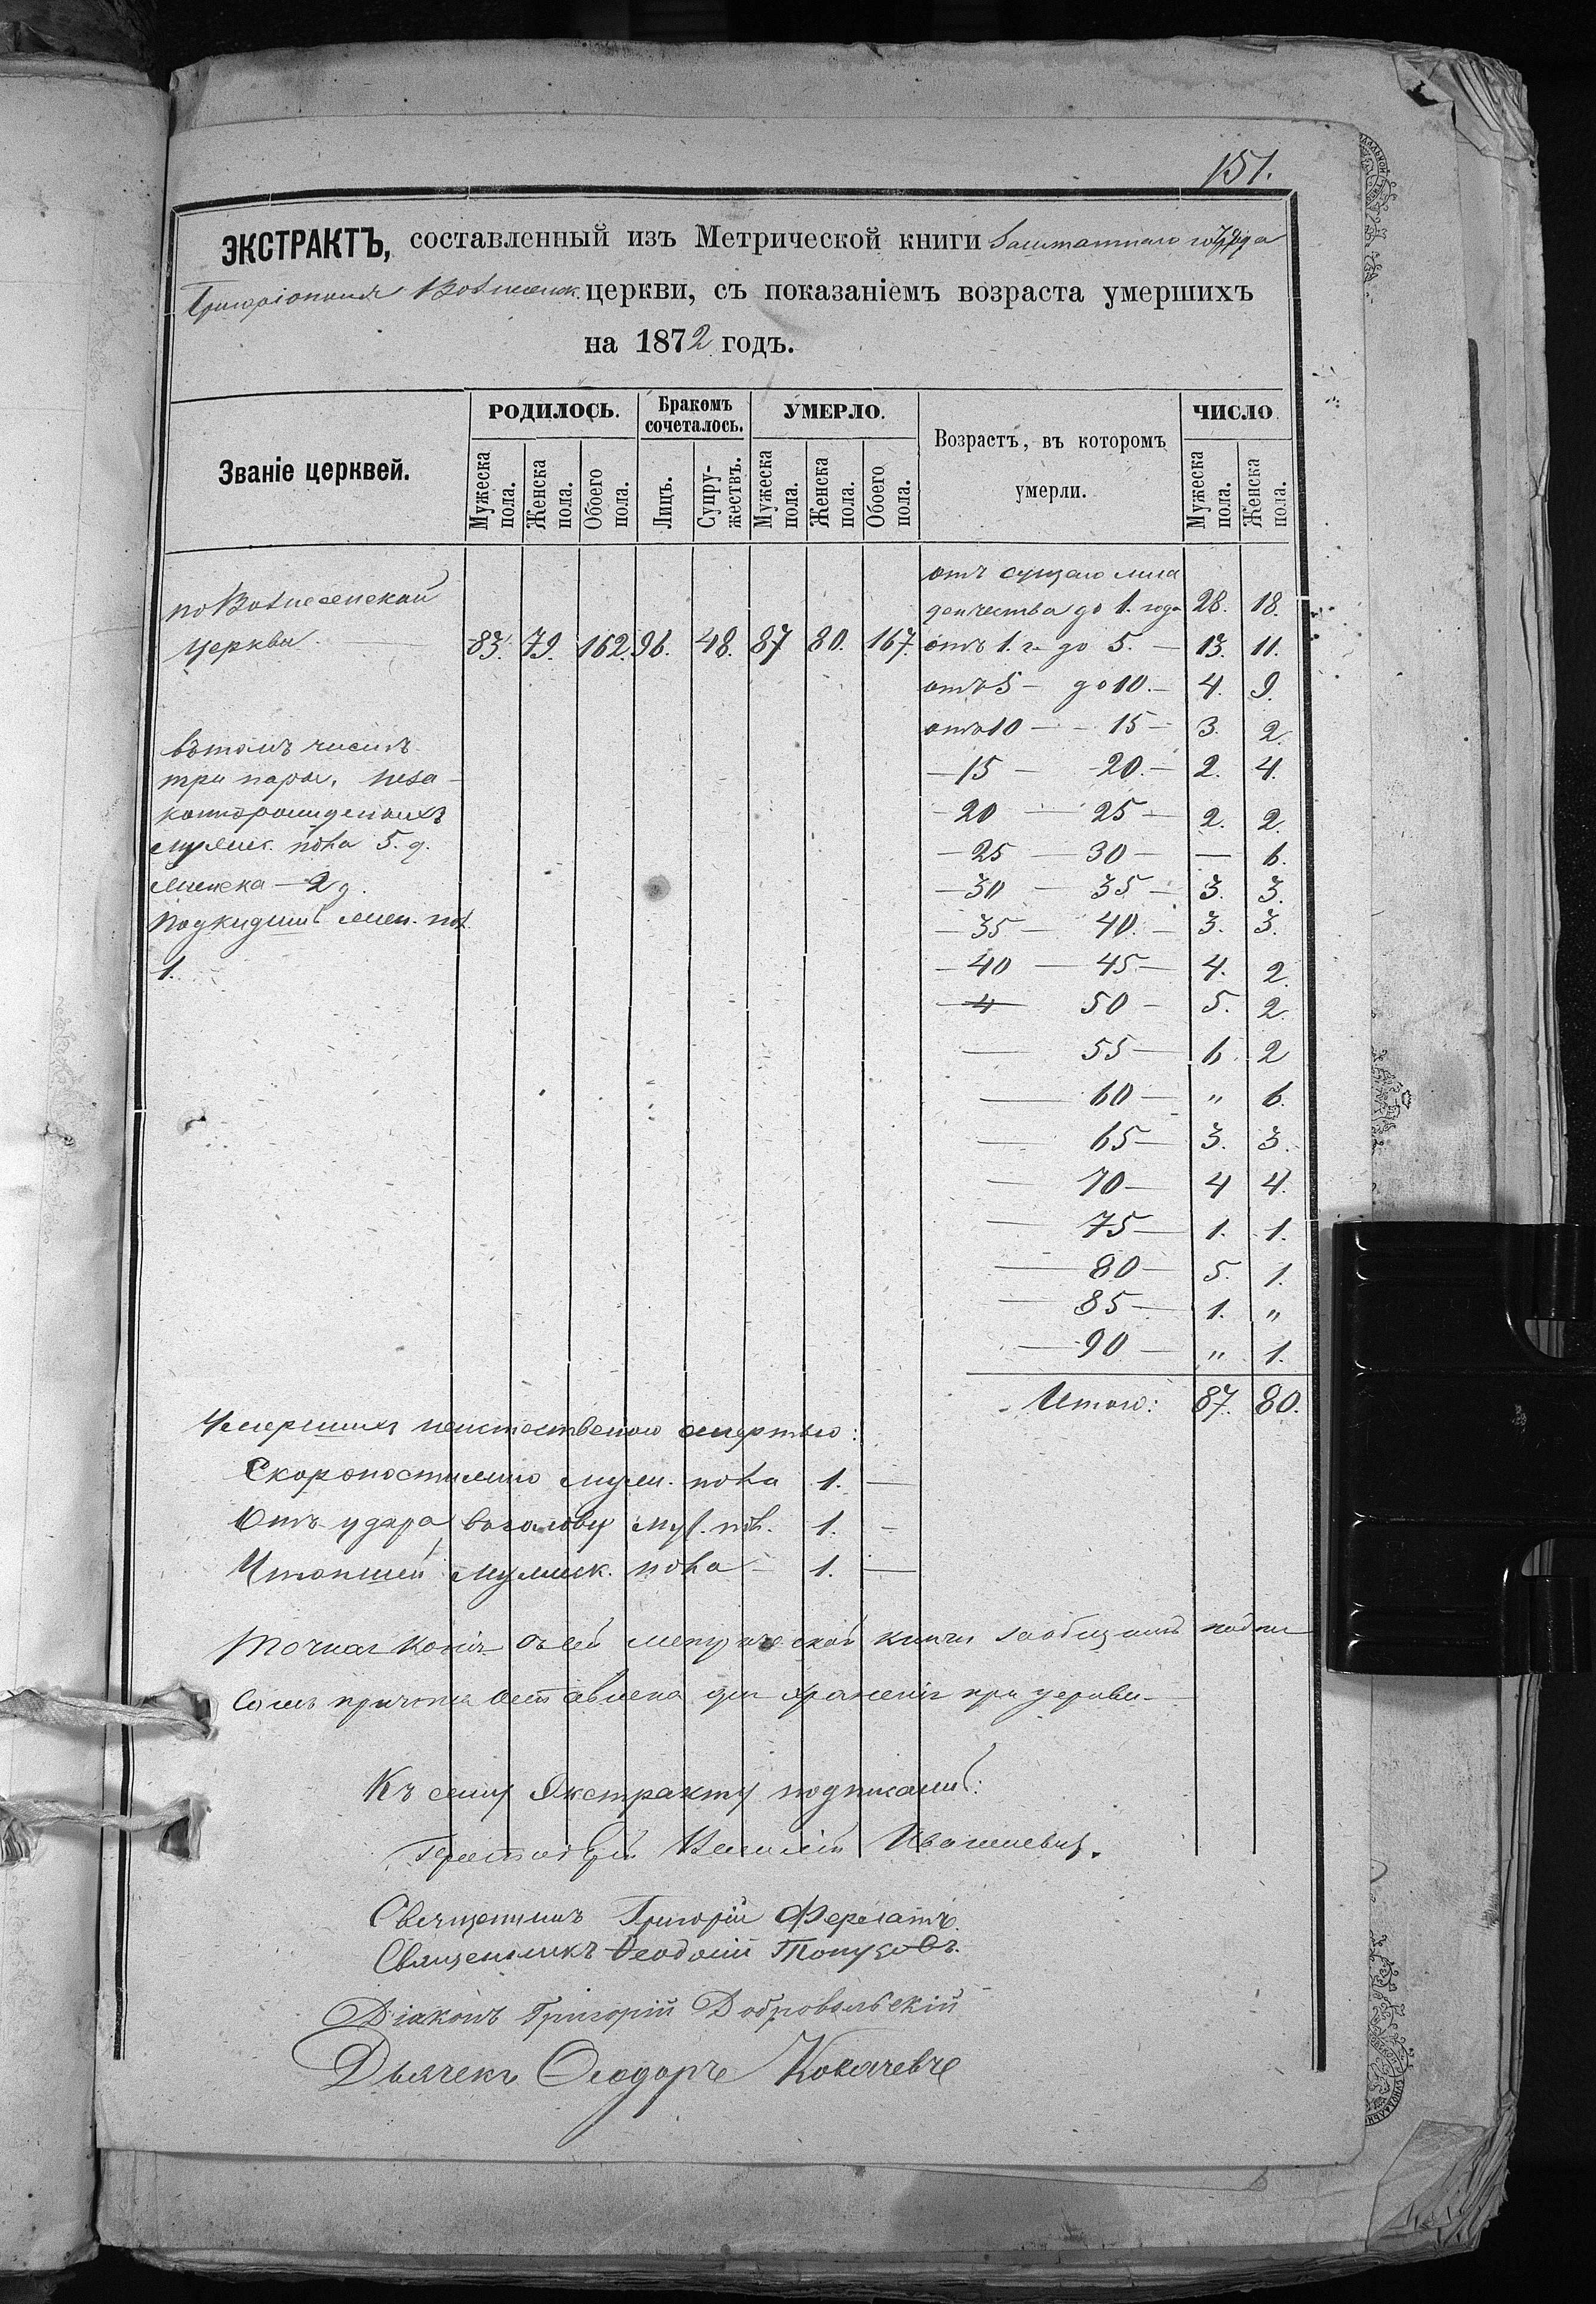 151.
ЭКСТРАКТЪ, составленный изъ Метрической книги Заштатнаго города
Григоріополя Вознесенск. церкви, съ показаніемъ возраста умершихъ
на 1872 годъ.
Званіе церквей. РОДИЛОСЬ. Бракомъ сочеталось. УМЕРЛО. Возрастъ, въ которомъ умерли. ЧИСЛО
Мужеска пола. Женска пола. Обоего пола. Лицъ. Супружествъ. Мужеска пола. Женска пола. Обоего пола. Мужеска пола. Женска пола.
отъ сущаго мла
по Вознесенской денчества до 1. года 28. 18.
церкви 83. 79. 162. 96. 48. 87 80. 167. отъ 1. г. до 5. — 13. 11.
отъ 5 — до 10. — 4. 9.
отъ 10 — 15 — 3. 2.
въ томъ числѣ
три пары, неза- — 15 — 20. — 2. 4.
коннорожденныхъ — 20 — 25 — 2. 2.
мужеск. пола 5. д. — 25 — 30 — — 6.
женска — 2 д. — 30 — 35 — 3. 3.
Подкидышъ жен. пол. — 35 — 40. — 3. 3.
1. — 40 — 45 — 4. 2.
— 4 50 — 5. 2.
— 55 — 6. 2
— 60 — „ 6.
— 65 — 3. 3.
— 70 — 4 4.
— 75 — 1. 1.
— 80 — 5. 1.
— 85 — 1. „
— 90 — „ 1.
Итого: 87. 80.
Умершихъ неестественою смертью:
Скоропостижно муж. пола 1. —
Отъ удара въ голову муж. пол. 1. —
Утопшій мужеск. пола — 1. —
Точная копія съ сей метрической книги за общимъ подпи
сомъ причта оставлена для храненія при церкви —
Къ сему Экстракту подписали:
Протоіерей Василій
Священникъ Григорій
Священникъ Ѳеодосій
Діаконъ Григорій Добровольскій
Дьячекъ Ѳеодоръ Ковачевъ